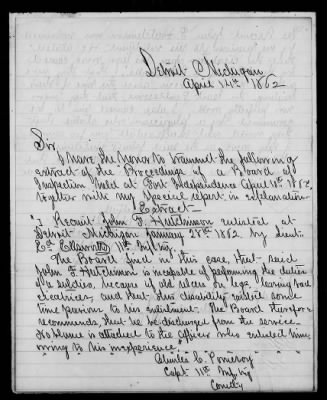 Detroit Michigan
April 14th 1862
Sir
I have the honor to transmit the following
extract of the Proceedings of a Board of
Inspection held at Fort Independence April 10th 1862,
together with my Special report in explanation
Extract—
"2 Recruit John F. Hutchinson enlisted at
Detroit Michigan January 28th 1862 by Lieut.
11th Inf'try.
The Board find in this case, that said
John F. Hutchinson is incapable of performing the duties
of a soldier, because of old ulcers on legs, leaving bad
cicatrices, and that this disability existed some
time previous to his enlistment. The Board therefore
recommends that he be discharged from the service.
No blame is attached to the officer who enlisted him,
owing to his inexperience."
Charles C. Pomeroy
Capt 11th Inf'try
Comd'g